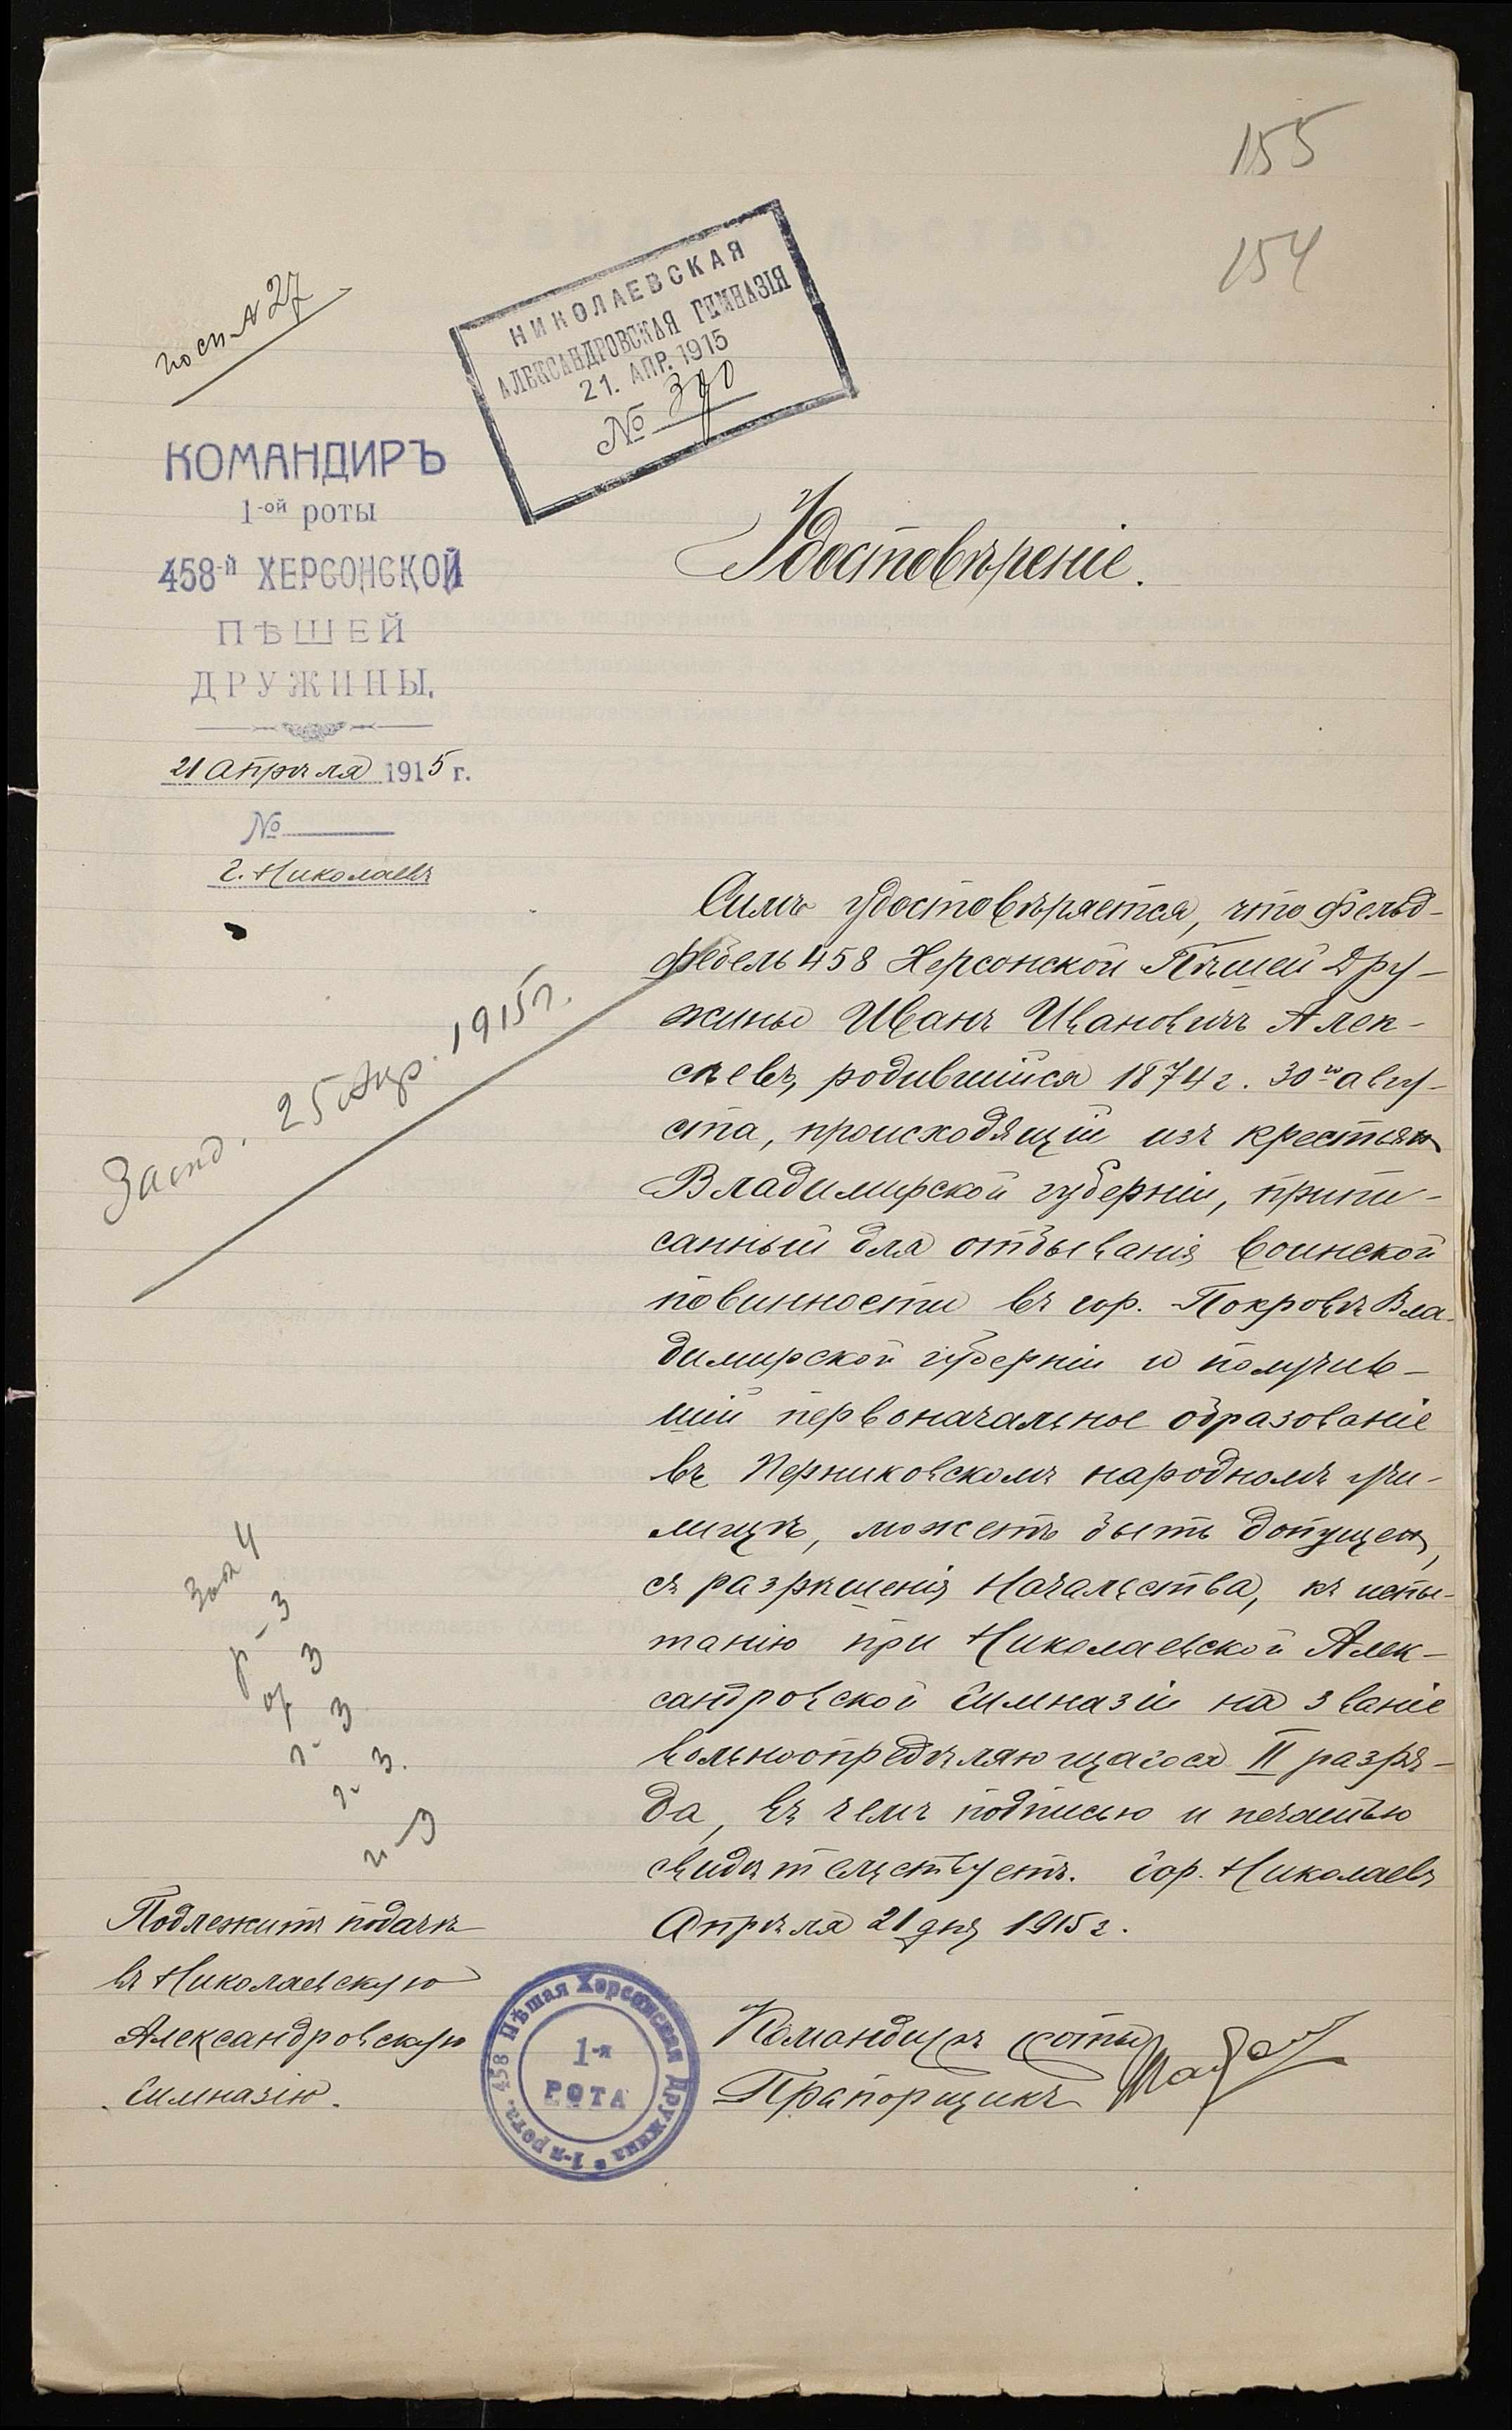 155
154
по сп. № 27
НИКОЛАЕВСКАЯ
АЛЕКСАНДРОВСКАЯ ГИМНАЗІЯ
21. АПР. 1915
№
КОМАНДИРЪ
1-ой роты
458-й ХЕРСОНСКОЙ
ПѢШЕЙ
ДРУЖИНЫ.
21 Апрѣля 1915 г.
№
г. Николаевъ
Удостовѣреніе.
Симъ удостовѣряется, что фельд-
фебель 458 Херсонской Пѣшей Дру-
жины Иванъ Ивановичъ Алек-
сѣевъ, родившійся 1874 г. 30го авгу-
ста, происходящій изъ крестьян
Владимирской губерніи, припи-
санный для отбыванія воинской
повинности въ гор. Покровѣ Вла-
димирской губерніи и получив-
шій первоначальное образованіе
въ Перниковскомъ народномъ учи-
лищѣ, можетъ быть допущен,
съ разрѣшенія Начальства, къ испы-
танію при Николаевской Алек-
сандровской Гимназіи на званіе
вольноопредѣляющагося II разря-
да, въ чемъ подписью и печатью
свидѣтельствуетъ. Гор. Николаевъ
Апрѣля 21 дня 1915 г.
Засѣд. 25 Апр. 1915 г.
Зак 4
р - 3
ар 3
г - 3
г - 3.
и - 3
Подлежитъ подачѣ
въ Николаевскую
Александровскую
Гимназію.
458 Пѣшая Херсонская Дружина 1-я рота.
1-я
РОТА
Командиръ роты
Прапорщикъ